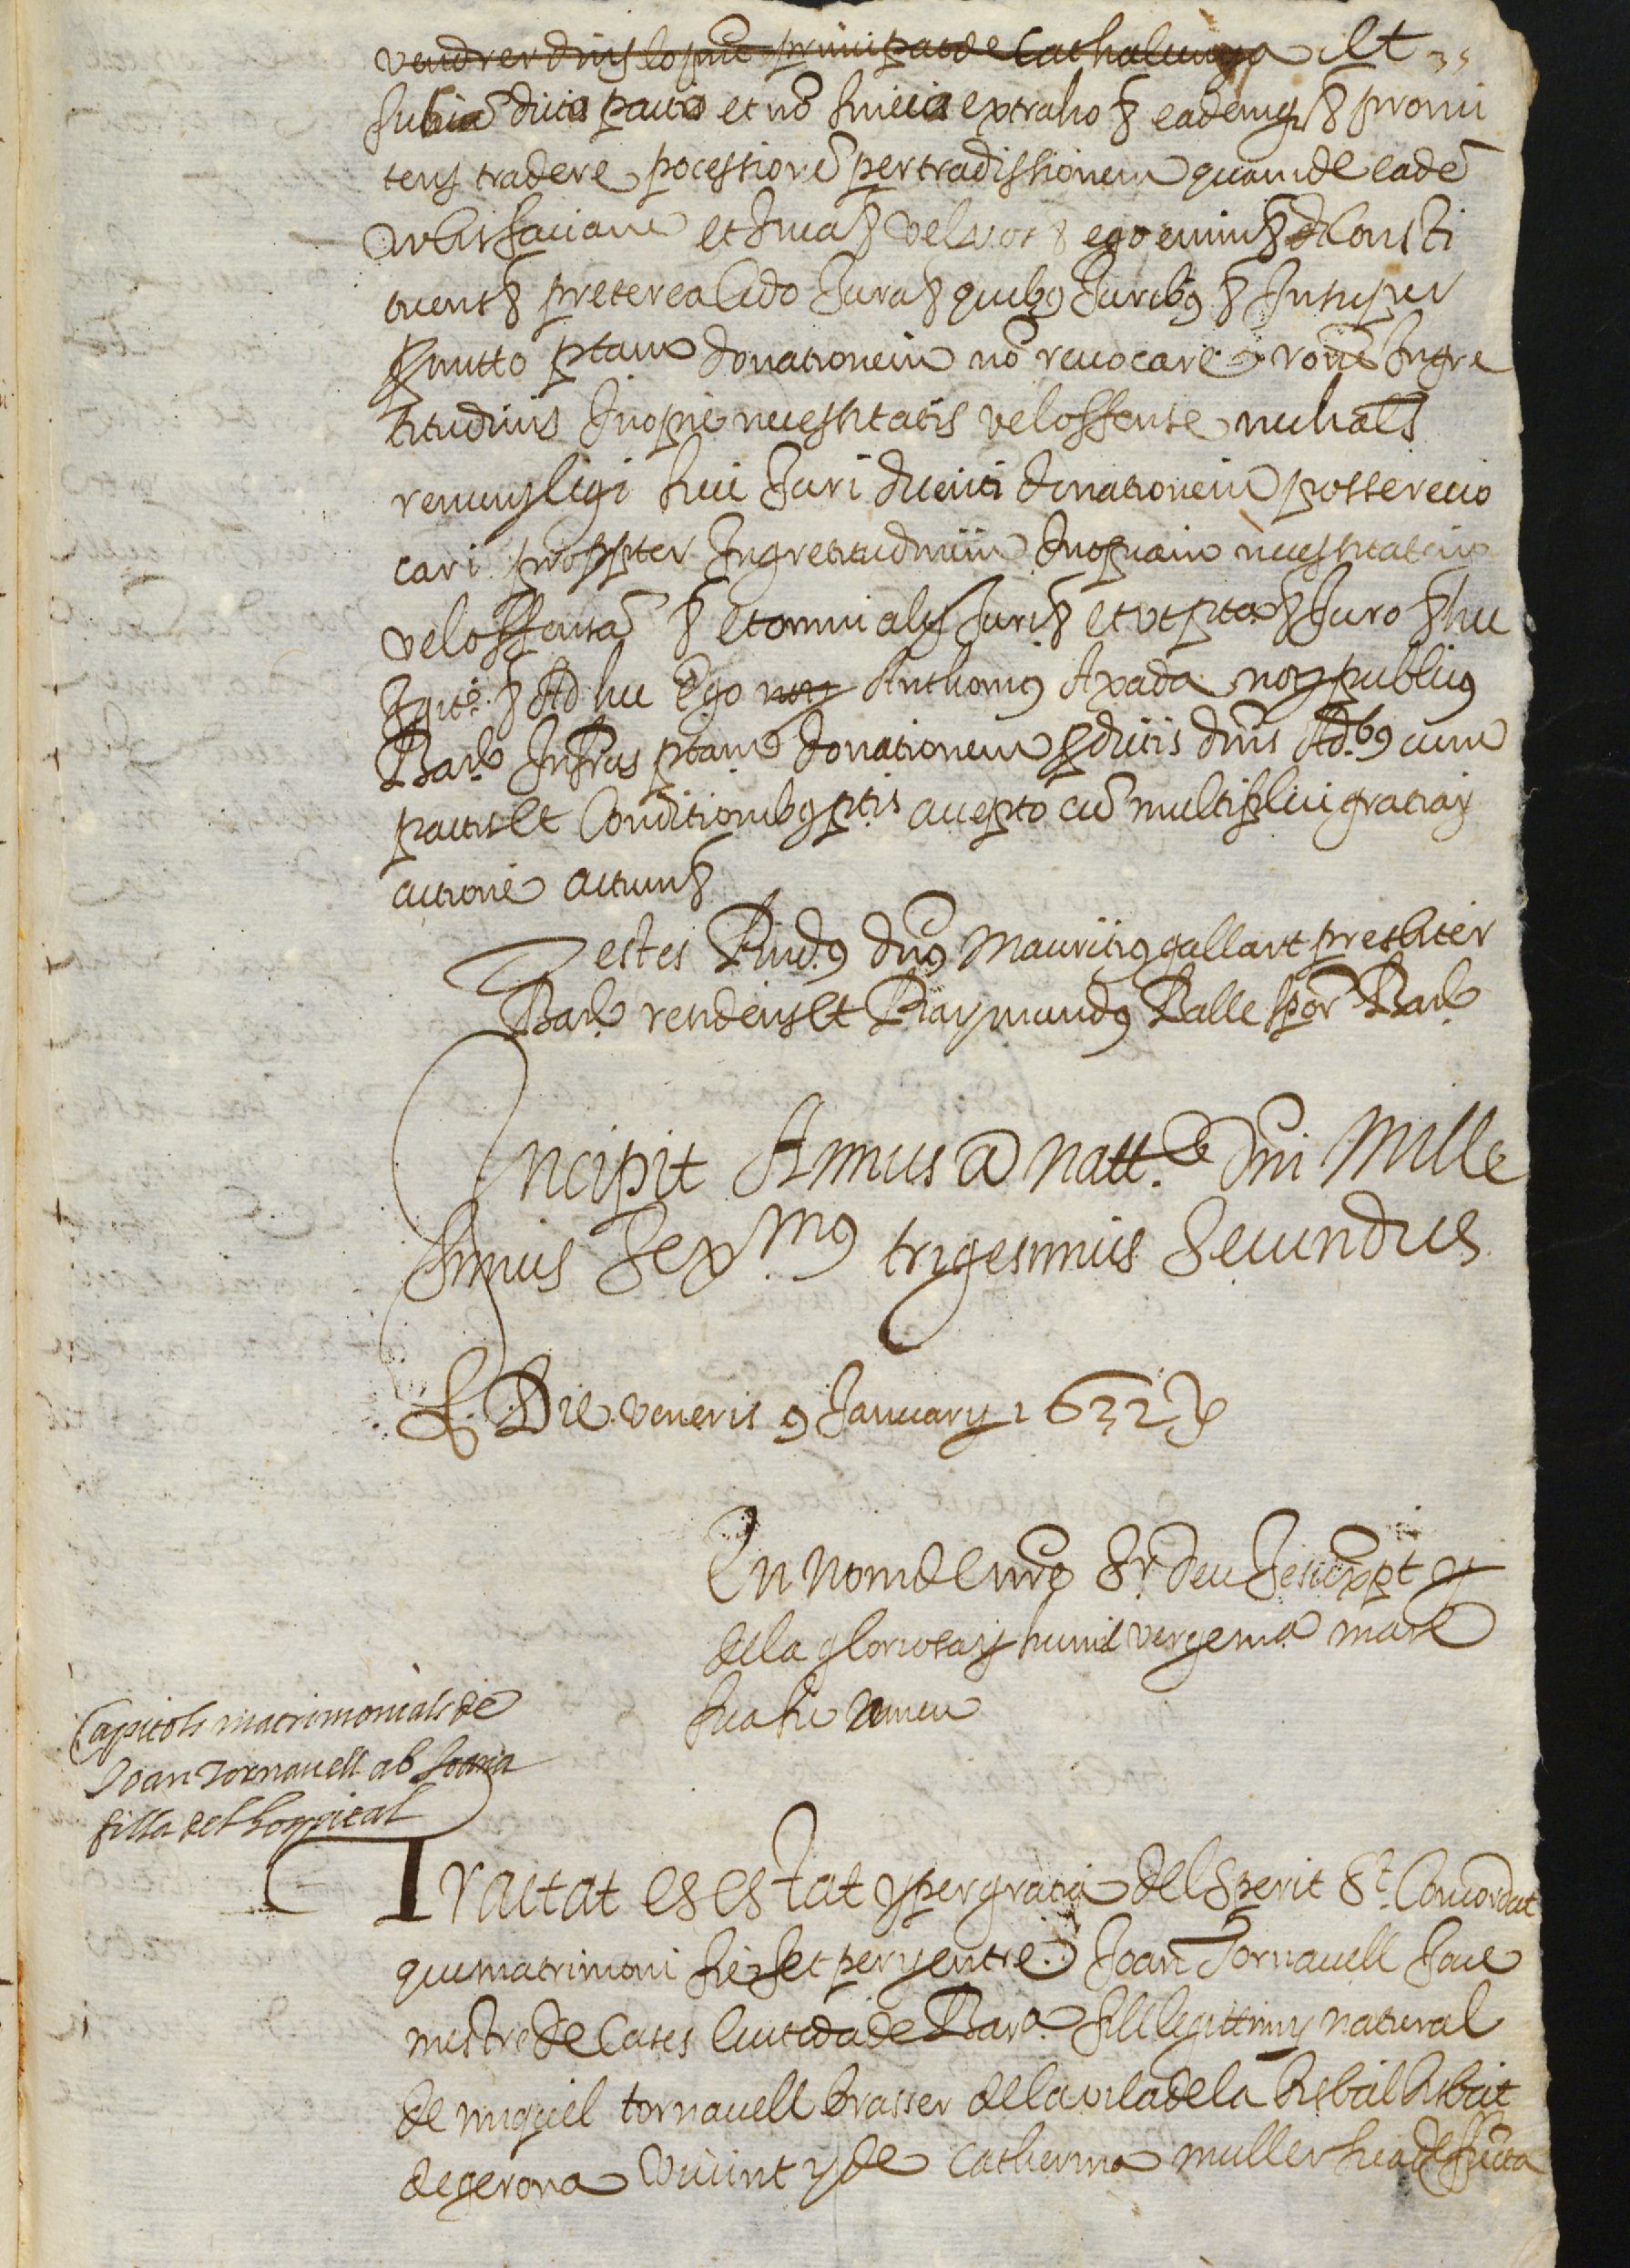 vendrer dins lo pnt principat de Cathalunya et
sub dictis pactis et no sine eis extraho & eademq & promi
tens tradere pocessione per tradissionem quam de eade
vobis faciam et Jura & vel vos & ego enim & Consti
tuens & preterea Cedo Jura & quibus Juribus & Insuper
promitto ptam donationem no revocare rone Ingre
titudinis Inopie necessitatis vel offense nulla als
renuns legi sive Juri dicenti donationem posse revo
cari propter Ingretitudinem Inopiam necessitatem
vel offensa & et omni aly Juri & et ut pta & Juro & hec
Igitr & Ad hec Ego noy Anthonius Axada noy publicus
Barne Infrus ptam donationem p dictis dnis Adbus cum
pactis et Conditionibus ptis accepto cu multiplici gratiay
actione actum &
Testes Rndus dnus Mauritius gallart presbiter
Barne residens et Raymundus Balle spor Barne
Incipit Annus a Natte Dni Mille
simus Sexmus trigesimus Secundus
Die veneris 9 January 1632
En nom de nre Sr deu Jesucrpt y
de la gloriosa y humil verge ma mare
sua sie Amen
Capitols matrimonials de
Joan Tornauell ab Joana
filla del hospital
Tractat es estat y per gratia del Sperit St Concordat
que matrimoni sie fet per y entre Joan Tornauell Jove
mestre de Cases Ciutada de Bara fill legittim y natural
de miquel tornauell brasser de la vila de la bisbal bisbat
de gerona vivint y de Catherina muller sua deffuncta